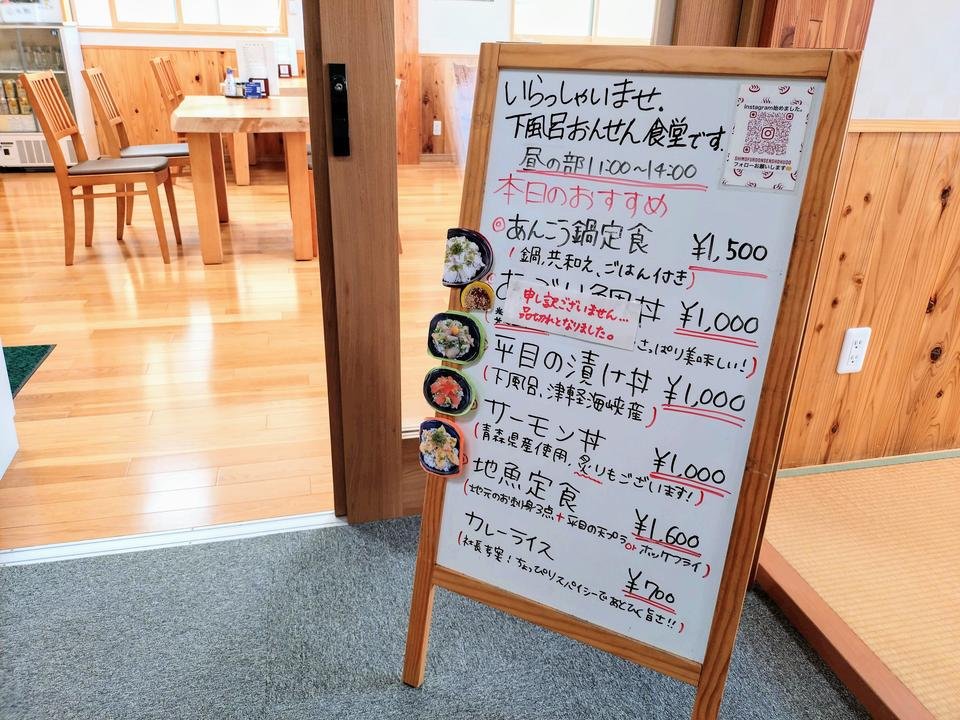 いらっしゃいませ.
下風呂おんせん食堂です.
instagram始めました。
SHIMOFUROONSENSHOKUDO
フォローお願いします
昼の部 11:00~14:00
本日のおすすめ
◎あんこう鍋定食 ¥1,500
(鍋,共和え、ごはん付き)
丼 ¥1,000
申し訳ございません…
品切れとなりました。
さっぱり美味しい!)
平目の漬け丼 ¥1,000
(下風呂、津軽海峡産)
サーモン丼 ¥1,000
(青森県産使用,炙りもございます!)
地魚定食 ¥1,600
(地元のお刺身3点+平目の天プラorホッケフライ)
カレーライス ¥700
(社長考案!ちょっぴりスパイシーであとひく旨さ!!)